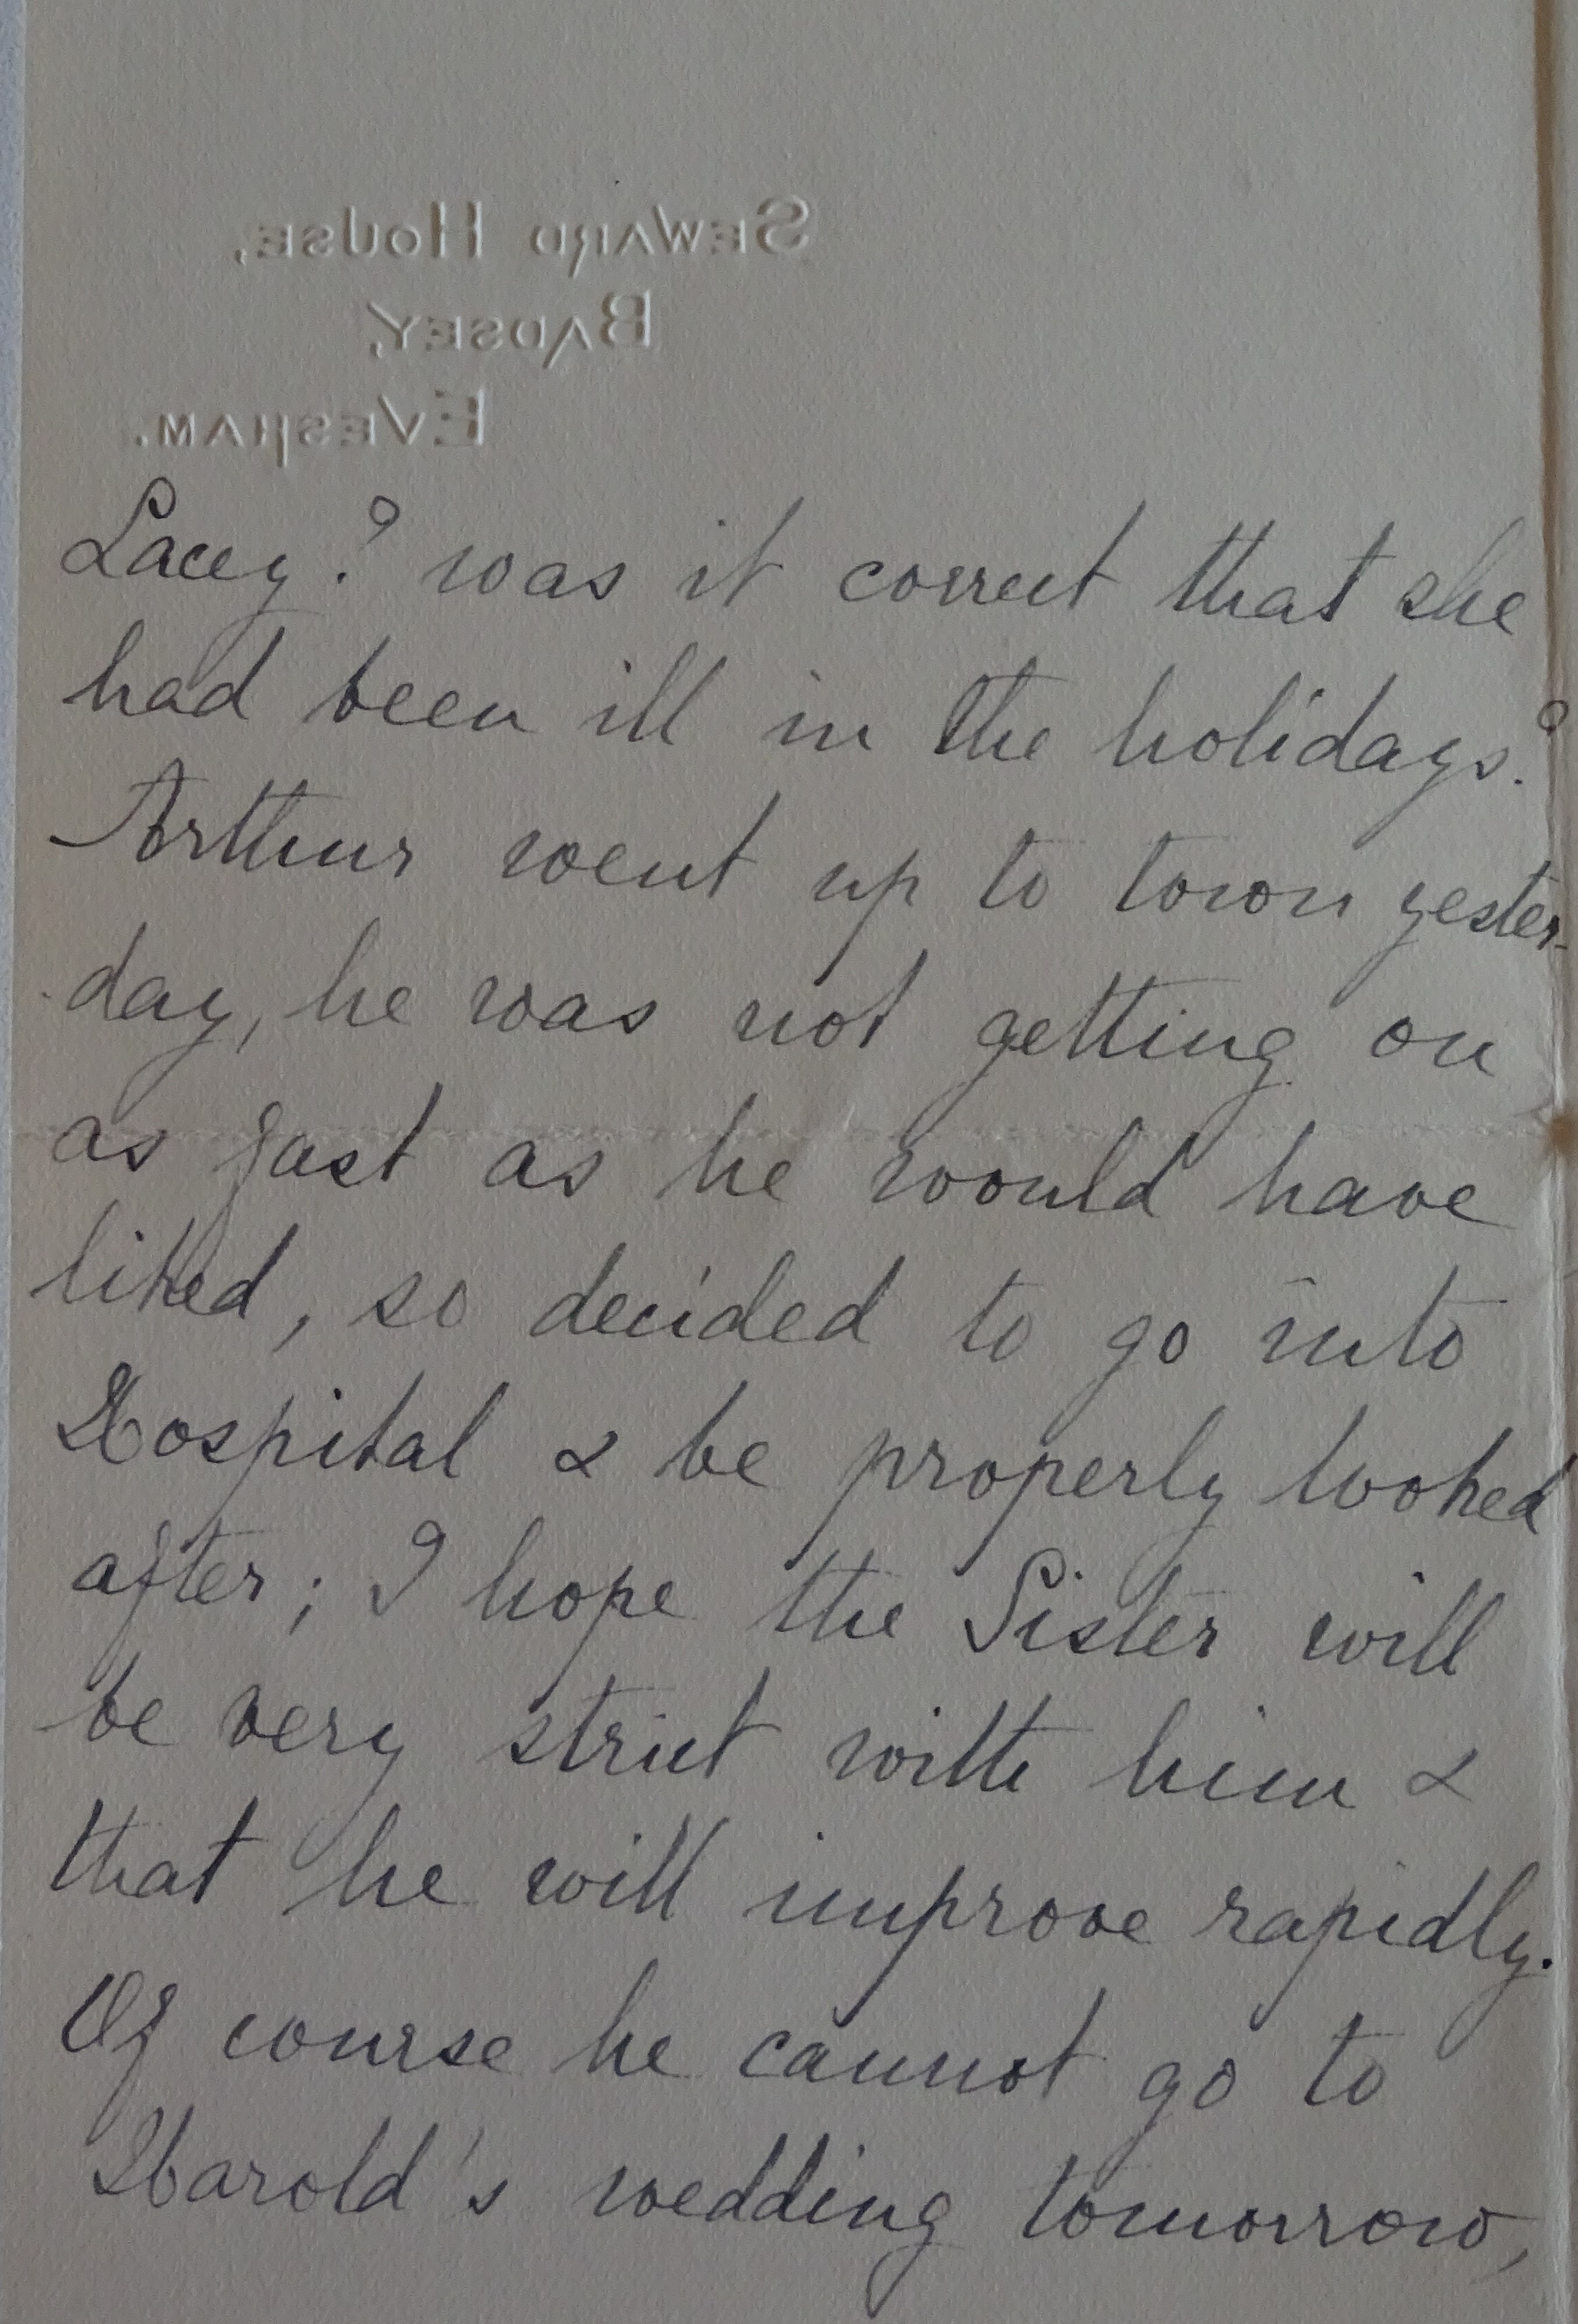 Seward House,
Badsey,
Evesham.
Lacey? was it correct that she
had been ill in the holidays?
Arthur went up to town yester-
day, he was not getting on
as fast as he would have
liked, so decided to go into
Hospital & be properly looked
after; I hope the Sister will
be very strict with him &
that he will improve rapidly.
Of course he cannot go to
Harold's wedding tomorrow,